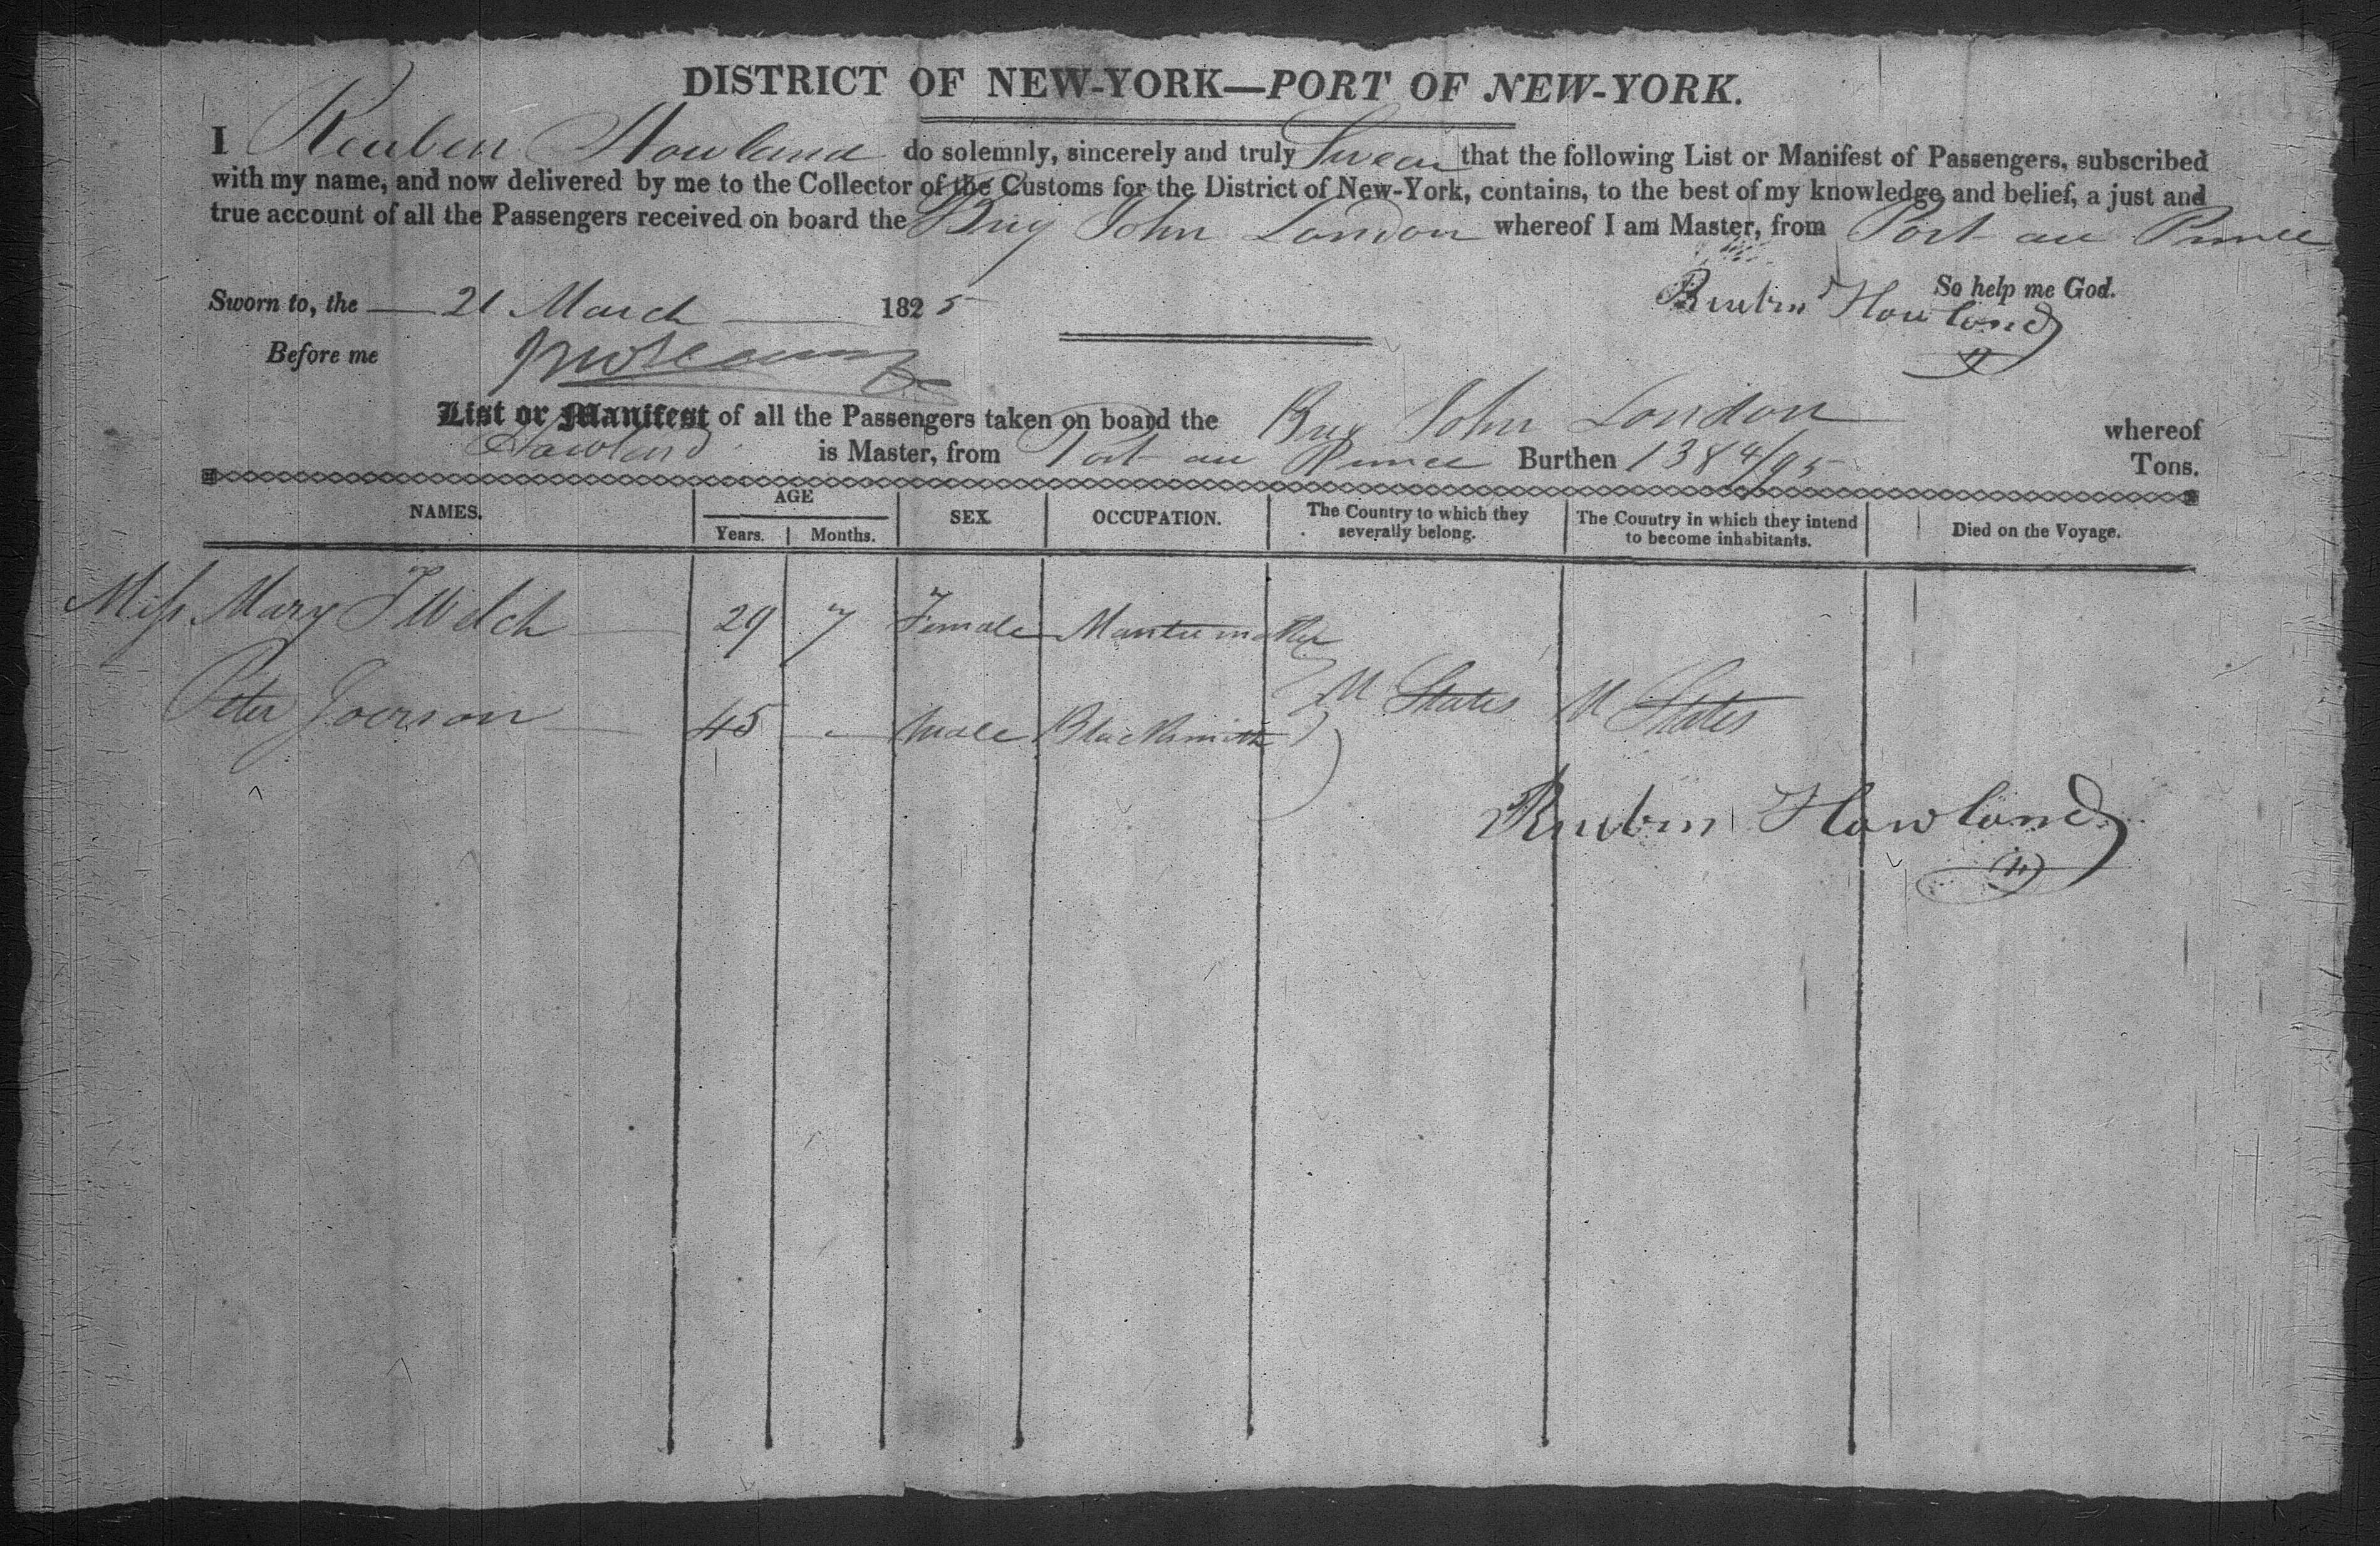 DISTRICT OF NEW-YORK—PORT OF NEW-YORK.
I Reuben Howland do solemnly, sincerely and truly Swear that the following List or Manifest of Passengers, subscribed
with my name, and now delivered by me to the Collector of the Customs for the District of New-York, contains, to the best of my knowledge and belief, a just and
true account of all the Passengers received on board the Brig John London whereof I am Master, from Port au Prince
So help me God.
Sworn to, the 21 March 1825 Reubin Howland
Before me
List or Manifest of all the Passengers taken on board the Brig John London whereof
Howland is Master, from Port au Prince Burthen 138 4/95 Tons.
NAMES. AGE Years. Months. SEX. OCCUPATION. The Country to which they severally belong. The Country in which they intend to become inhabitants. Died on the Voyage.
Miss Mary T Welch 29 7 Female Mantumaker
Peter 45 - Male Blacksmith U States U States
Reubin Howland